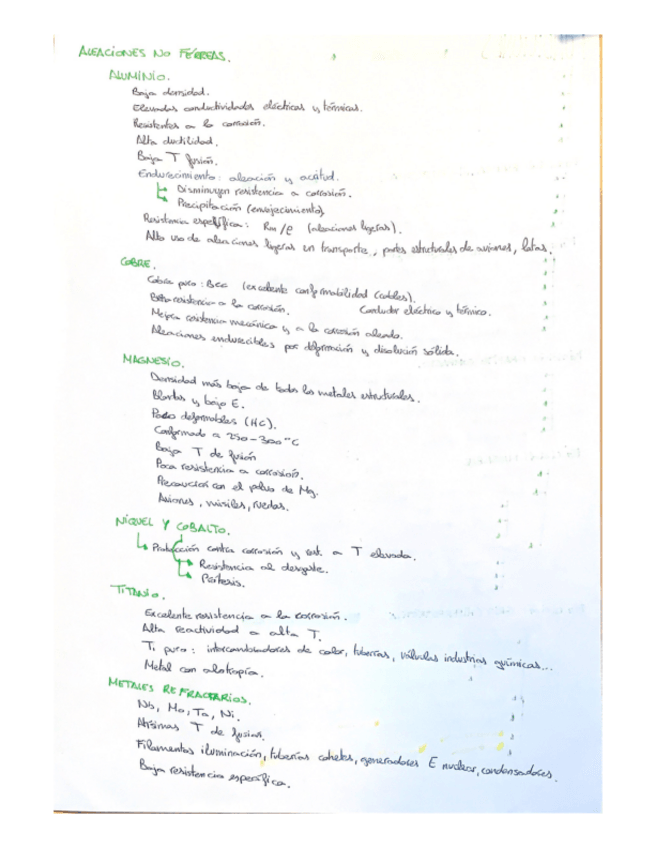 ALEACIONES NO FÉRREAS.
ALUMINIO.
Baja densidad.
Elevadas conductividades eléctricas y térmicas.
Resistentes a la corrosión.
Alta ductilidad.
Baja T fusión.
Endurecimiento: aleación y acritud.
Disminuyen resistencia a corrosión.
Precipitación (envejecimiento)
Resistencia específica: Rm/ρ (aleaciones ligeras).
Alto uso de aleaciones ligeras en transporte, partes estructurales de aviones, latas.
COBRE.
Cobre puro: Bcc (excelente conformabilidad (cables).
resistencia a la corrosión. Conductor eléctrico y térmico.
Mejor resistencia mecánica y a la corrosión aleado.
Aleaciones endurecibles por deformación y disolución sólida.
MAGNESIO.
Densidad más baja de todos los metales estructurales.
Blandos y bajo E.
Poco deformables (HC).
Conformado a 250-300 °C
Baja T de fusión
Poca resistencia a corrosión.
Precaución con el polvo de Mg.
Aviones, misiles, ruedas.
NÍQUEL Y COBALTO.
Protección contra corrosión y a T elevada.
Resistencia al desgaste.
Prótesis.
TITANIO.
Excelente resistencia a la corrosión.
Alta reactividad a alta T.
Ti puro: intercambiadores de calor, tuberías, válvulas industrias químicas...
Metal con alotropía.
METALES REFRACTARIOS.
Nb, Mo, Ta, Ni.
Altísimas T de fusion.
Filamentos iluminación, tuberías cohetes, generadores E nuclear, condensadores.
Baja resistencia específica.